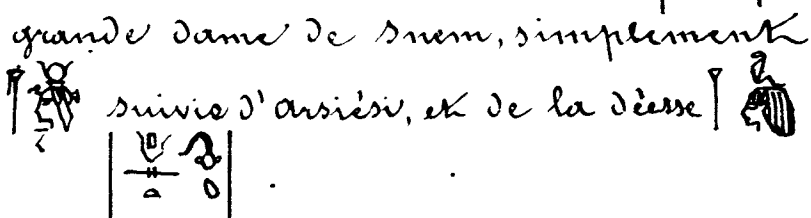 grande dame de Snem, simplement
suivie d'Arsiési, et de la déesse